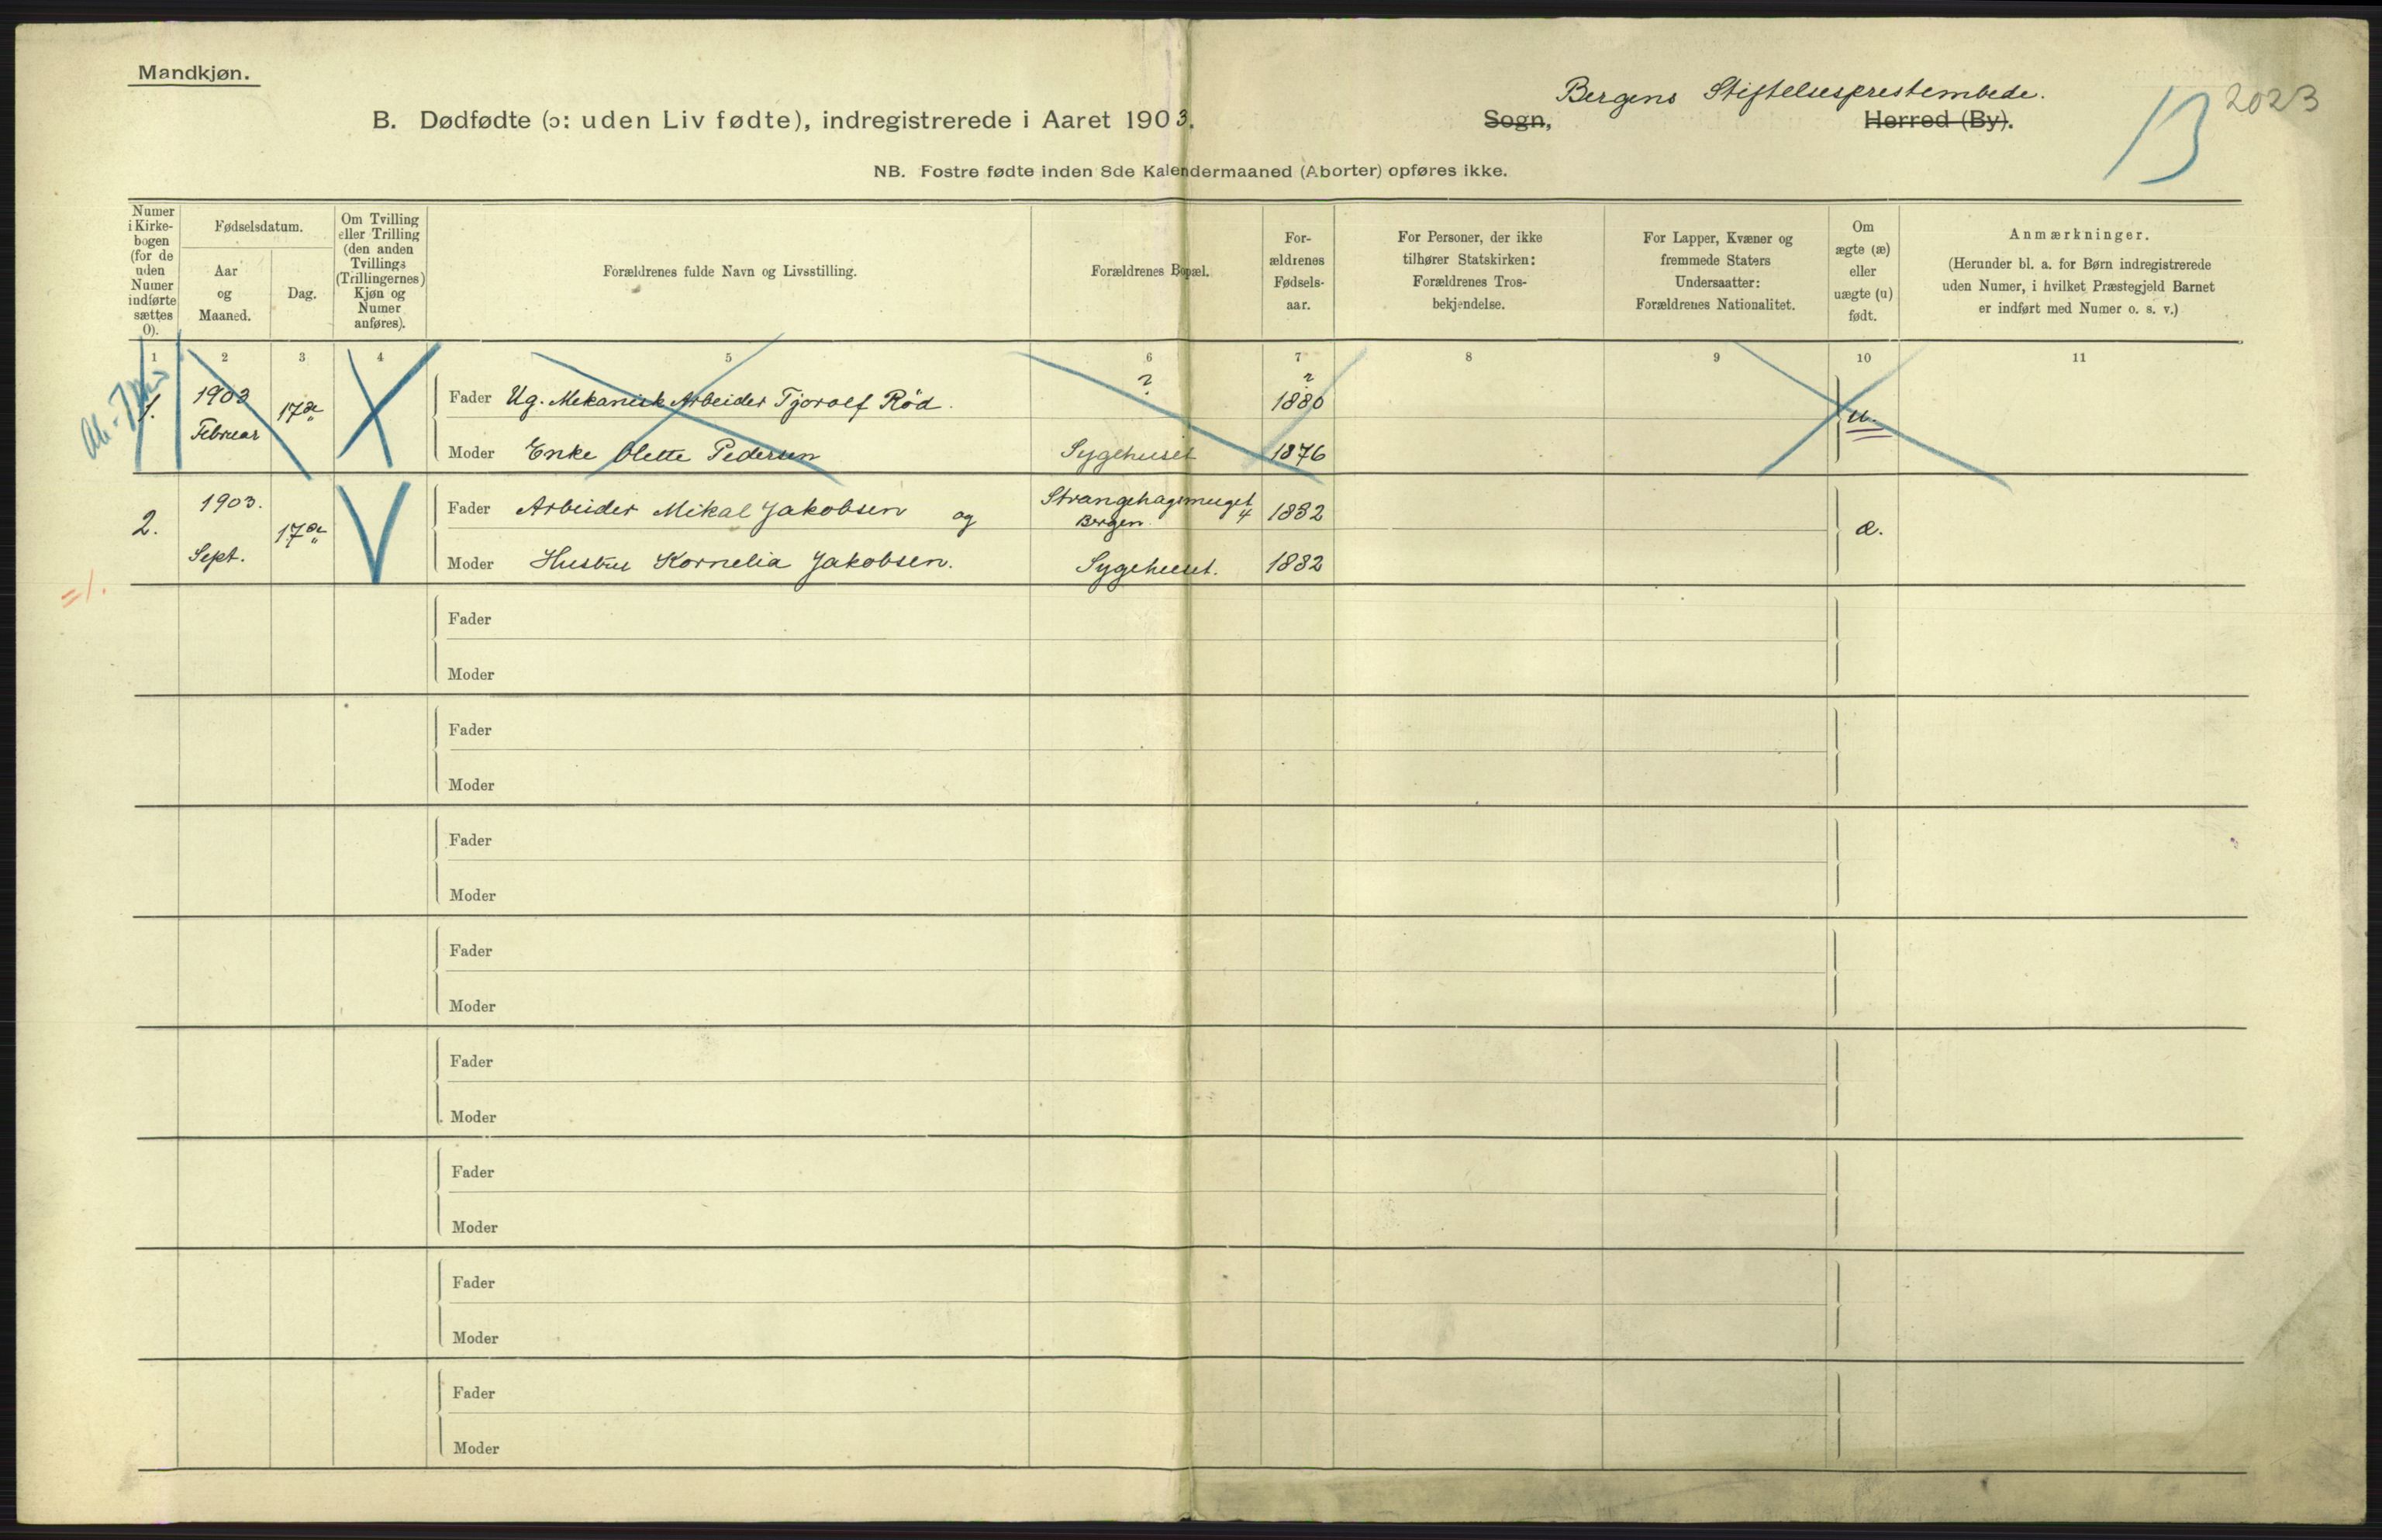 Mandkjøn.
Bergens Stiftelsesprestembede.
2023
B. Dødfødte (ɔ: uden Liv fødte), indregistrerede i Aaret 1903.
Sogn, Herred (By).
13
NB. Fostre fødte inden 8de Kalendermaaned (Aborter) opføres ikke.
Numer
i Kirke-
bogen
(for de
uden
Numer
indførte
sættes
0).
Fødselsdatum.
Aar
og
Maaned.
Dag.
Om Tvilling
eller Trilling
(den anden
Tvillings
(Trillingernes)
Kjøn og
Numer
anføres).
Forældrenes fulde Navn og Livsstilling.
Forældrenes Bopæl.
For-
ældrenes
Fødsels-
aar.
For Personer, der ikke
tilhører Statskirken:
Forældrenes Tros-
bekjendelse.
For Lapper, Kvæner og
fremmede Staters
Undersaatter:
Forældrenes Nationalitet.
Om
ægte (æ)
eller
uægte (u)
født.
Anmærkninger.
(Herunder bl. a. for Børn indregistrerede
uden Numer, i hvilket Præstegjeld Barnet
er indført med Numer o. s. v.)
1 2 3 4 5 6 7 8 9 10 11
1. 1903 Februar 17de
Fader Ug. Mekanisk Arbeider Tjorolf Rød. ? ? 1880
u.
Moder Enke Olette Pedersen Sygehuset 1876
2. 1903. Sept. 17de
Fader Arbeider Mikal Jakobsen og Strangehagsmuget 4 Bergen. 1882
æ.
Moder Hustru Kornelia Jakobsen. Sygehuset. 1882
=1.
Fader
Moder
Fader
Moder
Fader
Moder
Fader
Moder
Fader
Moder
Fader
Moder
Fader
Moder
Fader
Moder